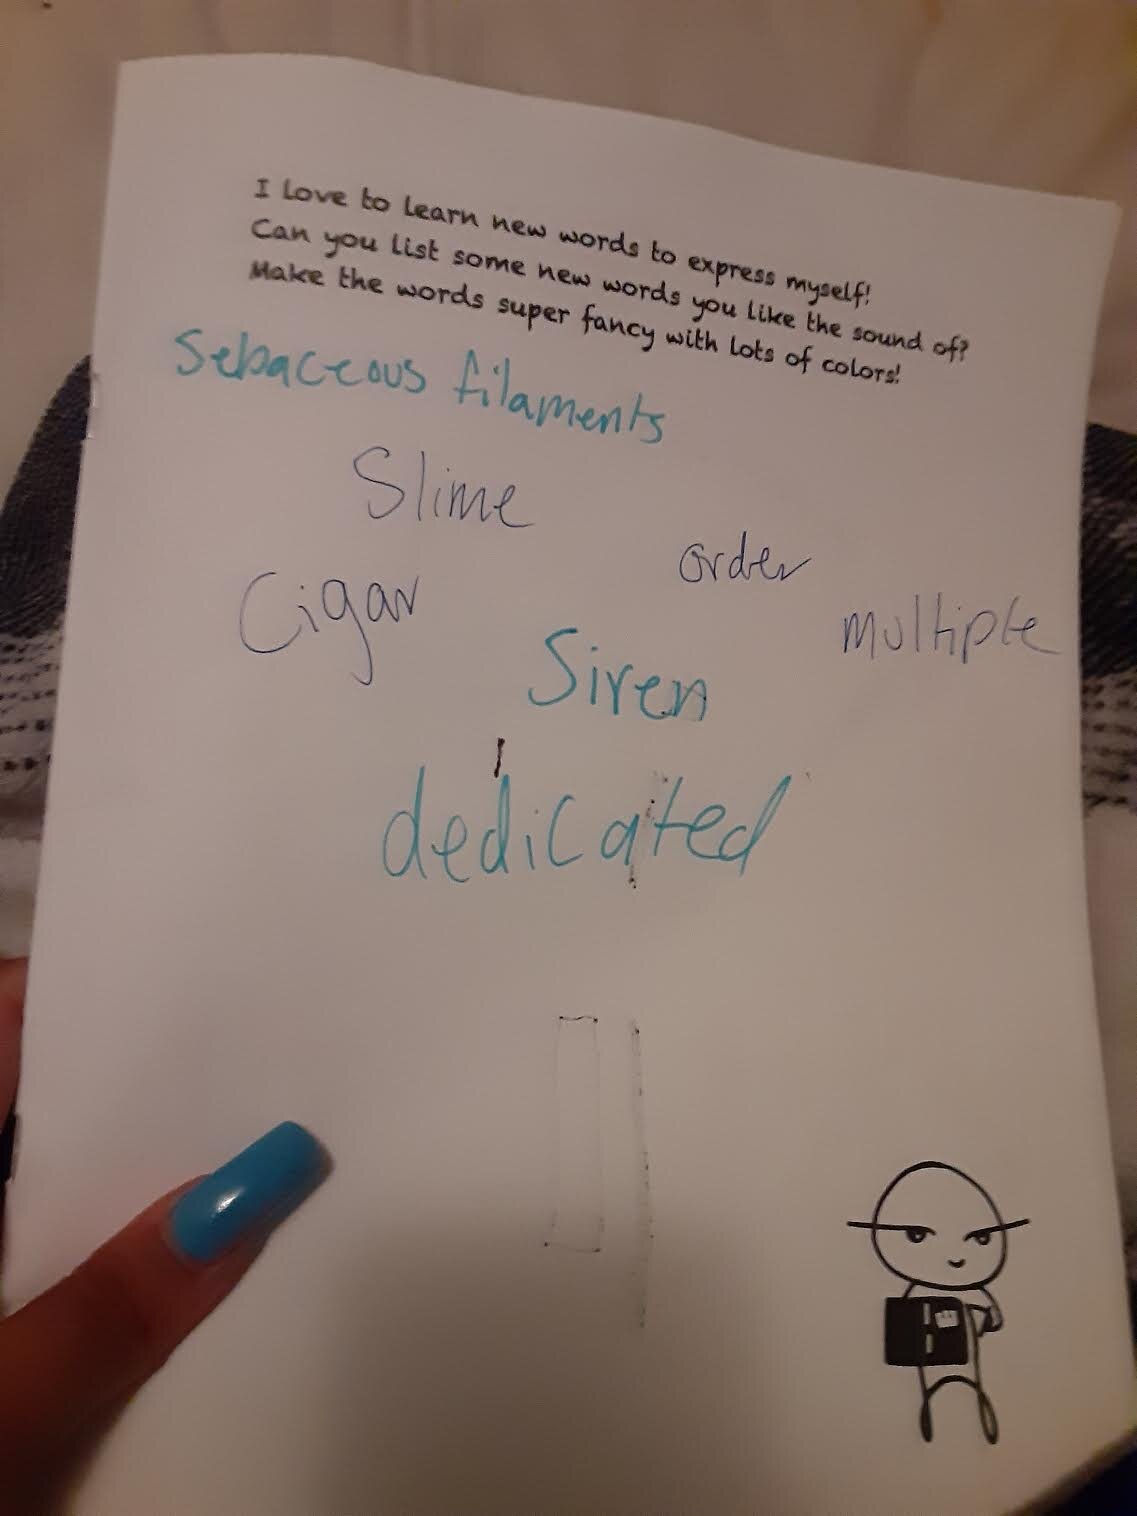 I Love to Learn new words to express myself!
Can you list some new words you like the sound of?
Make the words super fancy with lots of colors!
Sebaceous filaments
Slime
order
Cigar
multiple
Siren
dedicated